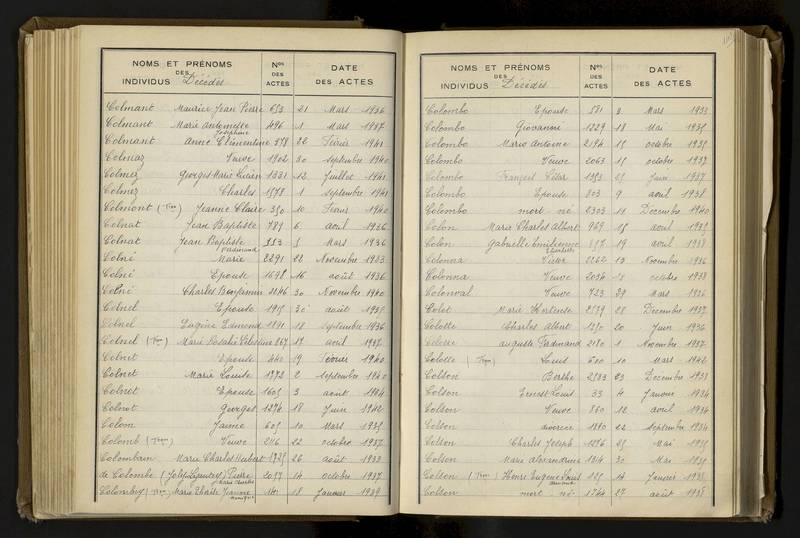 NOMS ET PRÉNOMS Nos DATE
DES DES DES ACTES
INDIVIDUS Décédés ACTES
Colmant Maurice Jean Pierre 653 21 Mars 1936
Colmant Marie Antoinette Joséphine 496 1 Mars 1937
Colmant Anne Clémentine 578 22 Février 1941
Colmaz Veuve 1902 30 septembre 1940
Colmez Georges Marie Lucien 1331 12 Juillet 1941
Colmez Charles 1578 1 septembre 1941
Colmont Jeanne Claire 350 10 Février 1940
Colnat Jean Baptiste 789 6 avril 1936
Colnat Jean Baptiste Ferdinand 553 5 Mars 1936
Colné Marie 2291 22 Novembre 1933
Colné Epouse 1698 16 août 1936
Colné Charles Benjamin 2246 30 Novembre 1940
Colnel Epouse 30 août
Colnel Eugène Edmond 18 septembre 1936
Colnel Marie Rosalie Célestine 867 17 avril
Colnet Epouse 440 19 Février 1940
Colnet Marie Louise 1772 2 septembre 1940
Colnot Epouse 1605 3 août 1934
Colnot Georges 1274 18 Juin 1942
Colom Jaime 605 10 Mars 1935
Colomb Veuve 2116 22 octobre 1937
Colombain Marie Charles Hubert 26 août 1933
de Colombe Pierre Marie Charles 2057 14 octobre 1937
Colombey Marie Thérèse Jeanne 141 18 Janvier 1939
NOMS ET PRÉNOMS Nos DATE
DES DES DES ACTES
INDIVIDUS Décédés ACTES
Colombo Epouse 551 3 Mars 1933
Colombo Giovanni 1229 18 Mai 1935
Colombo Mario Antoine 2194 15 octobre 1935
Colombo Veuve 2063 15 octobre 1937
Colombo François 1393 25 Juin 1937
Colombo Epouse 803 9 avril 1938
Colombo mort né 2303 11 Décembre 1940
Colon Marie Charles Albert 969 15 avril 1935
Colon Gabrielle Emilienne 857 19 avril 1938
Colonna Victor 2262 13 Novembre 1936
Colonna Veuve 2036 octobre 1938
Colonval Veuve 723 29 Mars 1936
Colot Marie Hortense 2539 28 Décembre 1937
Colotte Charles Albert 1250 20 Juin 1936
Colotte Auguste Ferdinand 2180 1 Novembre 1937
Colotte Louis 600 10 Mars 1942
Colson Berthe 2533 23 Décembre 1933
Colson Ernest Louis 33 4 Janvier 1934
Colson Veuve 860 12 avril 1934
Colson 1880 22 septembre 1934
Colson Charles Joseph 1296 25 Mai 1935
Colson Marie Alexandrine 1314 30 Mai 1935
Colson Henri Eugène Louis 125 14 Janvier 1938
Colson mort né 1744 27 août 1938